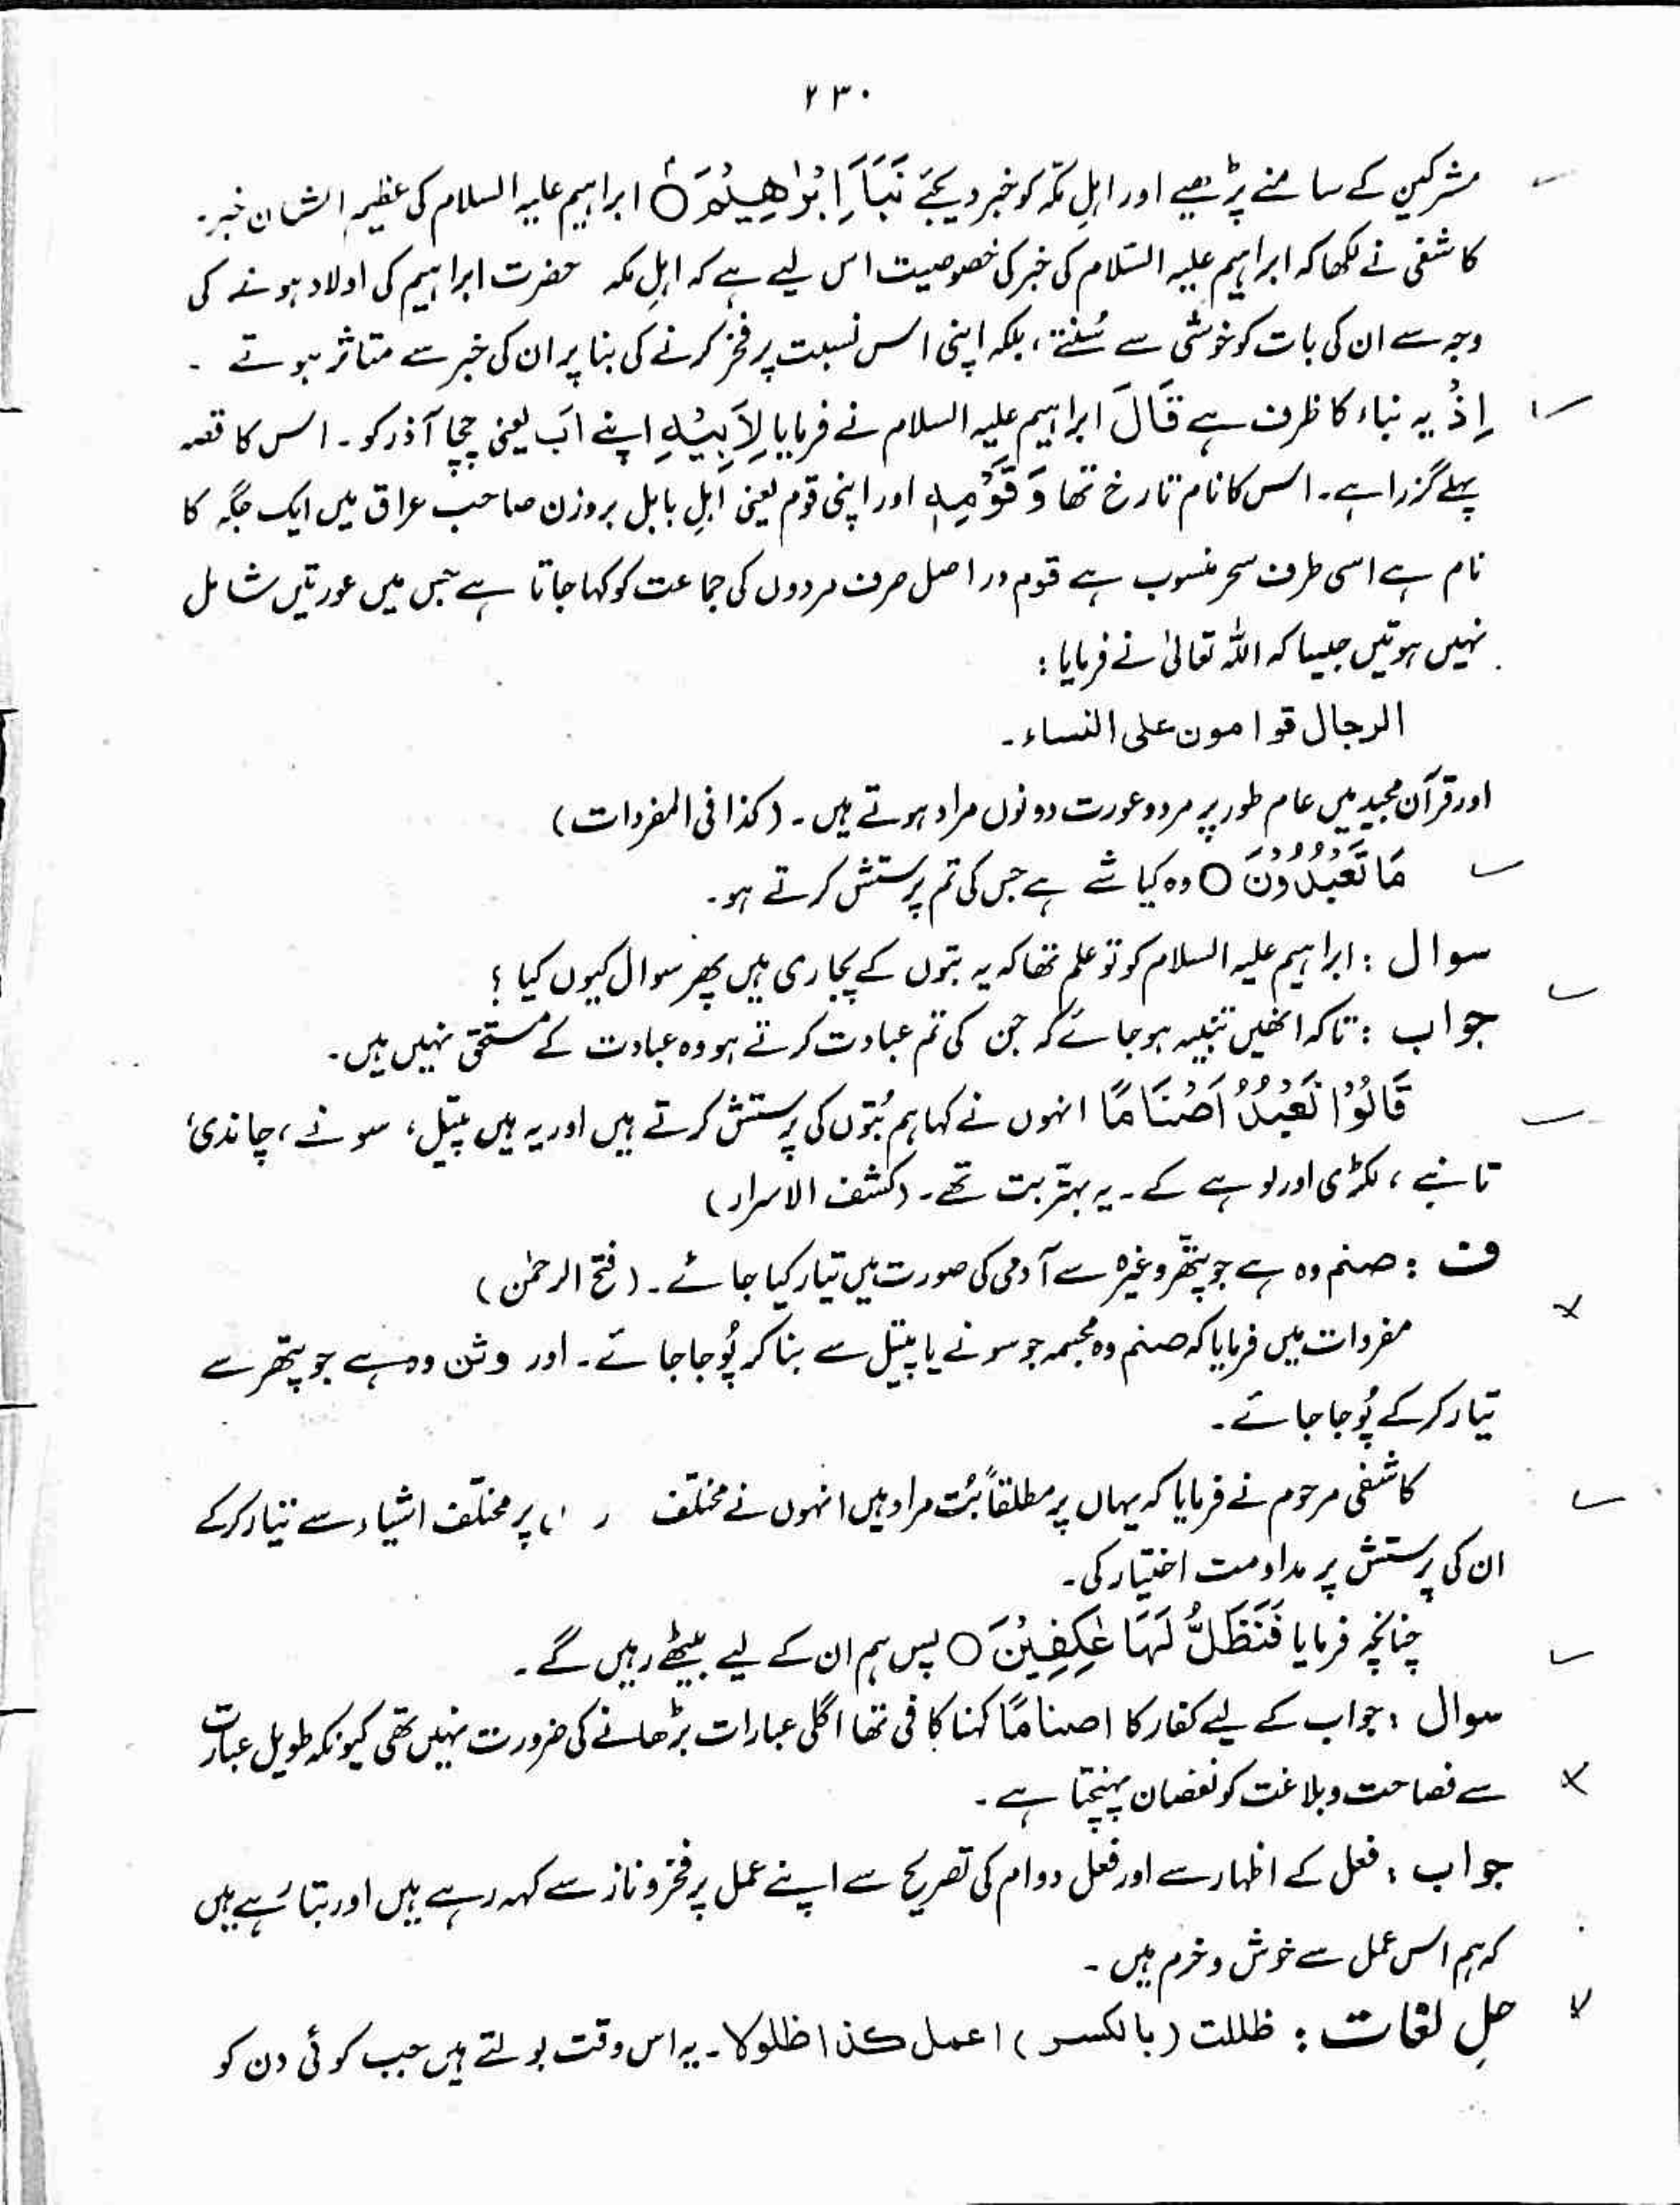 ۲۳۰
مشرکین کے سامنے پڑھیے اور اہلِ مکّہ کو خبر دیجئے نَبَاَ اِبْرٰهِیْمَ ۘ○ ابراہیم علیہ السلام کی عظیم الشان خبر۔
کاشفی نے لکھا کہ ابراہیم علیہ السّلام کی خبر کی خصوصیت اس لیے ہے کہ اہلِ مکہ حضرت ابراہیم کی اولاد ہونے کی
وجہ سے ان کی بات کو خوشی سے سُنتے، بلکہ اپنی اس نسبت پر فخر کرنے کی بنا پر ان کی خبر سے متاثر ہوتے ۔
اِذْ یہ نباء کا ظرف ہے قَالَ ابراہیم علیہ السلام نے فرمایا لِاَبِیْهِ اپنے اَب یعنی چچا آذر کو۔ اس کا قصہ
پہلے گزرا ہے۔ اس کا نام تارخ تھا وَ قَوْمِهٖ اور اپنی قوم یعنی اہلِ بابل بروزن صاحب عراق میں ایک جگہ کا
نام ہے اسی طرف سحر منسوب ہے قوم دراصل صرف مردوں کی جماعت کو کہا جاتا ہے جس میں عورتیں شامل
نہیں ہوتیں جیسا کہ اللہ تعالیٰ نے فرمایا :
الرجال قوامون علی النساء۔
اور قرآن مجید میں عام طور پر مرد و عورت دونوں مراد ہوتے ہیں۔ (کذا فی المفردات)
مَا تَعْبُدُوْنَ ○ وہ کیا شے ہے جس کی تم پرستش کرتے ہو۔
سوال : ابراہیم علیہ السلام کو تو علم تھا کہ یہ بتوں کے پجاری ہیں پھر سوال کیوں کیا ؟
جواب : تاکہ انھیں تنبیہ ہو جائے کہ جن کی تم عبادت کرتے ہو وہ عبادت کے مستحق نہیں ہیں۔
قَالُوْا نَعْبُدُ اَصْنَامًا انہوں نے کہا ہم بُتوں کی پرستش کرتے ہیں اور یہ ہیں پیتل، سونے، چاندی،
تانبے ، لکڑی اور لوہے کے۔ یہ بہتّر بت تھے۔ (کشف الاسرار)
ف : صنم وہ ہے جو پتھّر وغیرہ سے آدمی کی صورت میں تیار کیا جائے۔ (فتح الرحمٰن)
مفردات میں فرمایا کہ صنم وہ مجسمہ جو سونے یا پیتل سے بنا کر پُوجا جائے۔ اور وثن وہ ہے جو پتھر سے
تیار کرکے پُوجا جائے۔
کاشفی مرحوم نے فرمایا کہ یہاں پر مطلقاً بُت مراد ہیں انہوں نے مختلف پر مختلف اشیاء سے تیار کرکے
ان کی پرستش پر مداومت اختیار کی۔
چنانچہ فرمایا فَنَظَلُّ لَهَا عٰكِفِیْنَ ○ پس ہم ان کے لیے بیٹھے رہیں گے۔
سوال : جواب کے لیے کفار کا اصنامًا کہنا کافی تھا اگلی عبارات بڑھانے کی ضرورت نہیں تھی کیونکہ طویل عبارت
سے فصاحت و بلاغت کو نقصان پہنچتا ہے۔
جواب : فعل کے اظہار سے اور فعل دوام کی تصریح سے اپنے عمل پر فخر و ناز سے کہہ رہے ہیں اور بتا رہے ہیں
کہ ہم اس عمل سے خوش و خرم ہیں۔
حلِ لغات : ظللت (بالکسر) اعمل کذا ظلولا۔ یہ اس وقت بولتے ہیں جب کوئی دن کو